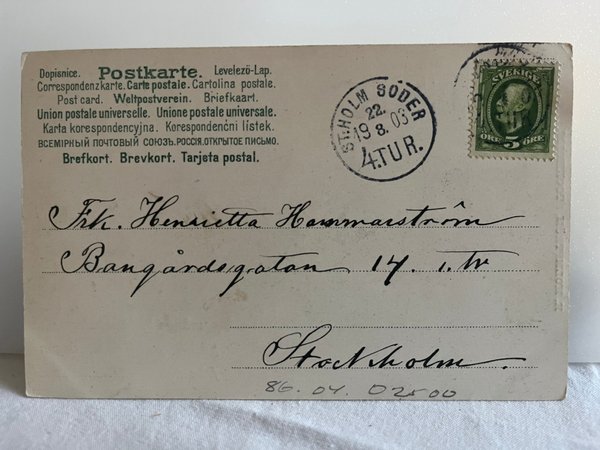 Dopisnice. Postkarte. Levelező-Lap.
Correspondenzkarte. Carte postale. Cartolina postale.
Post card. Weltpostverein. Briefkaart.
Union postale universelle. Unione postale universale.
Karta korespondencyjna. Korespondenční lístek.
ВСЕМІРНЫЙ ПОЧТОВЫЙ СОЮЗЪ. РОССІЯ. ОТКРЫТОЕ ПИСЬМО.
Brefkort. Brevkort. Tarjeta postal.
ST:HOLM SÖDER
22.
19 8. 03
4.TUR.
SVERIGE
ÖRE 5 ÖRE
Frk. Henrietta Hammarström
Bangårdsgatan 14. 1. tr
Stockholm.
86. 04. D2500